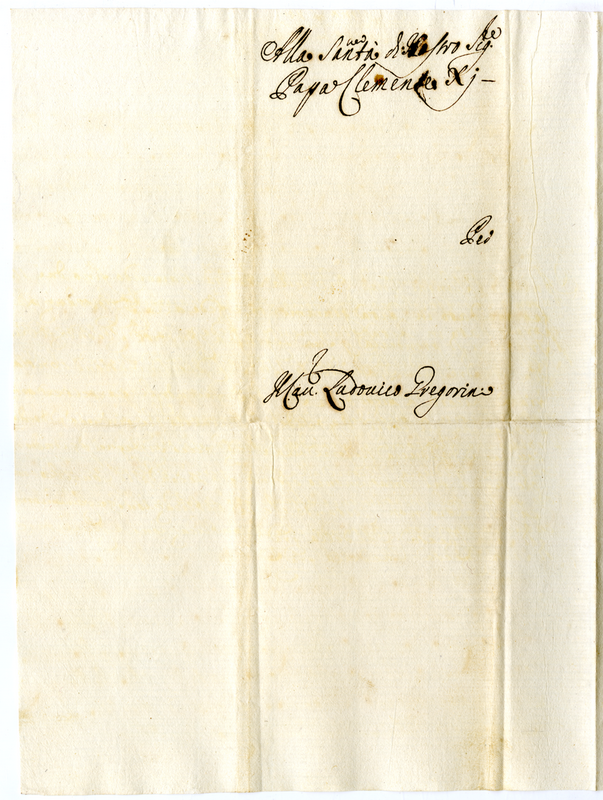 Alla Santà di Nostro Sig.re
Papa Clemente XJ —
Per
Il Cau. Ludouico Gregorini